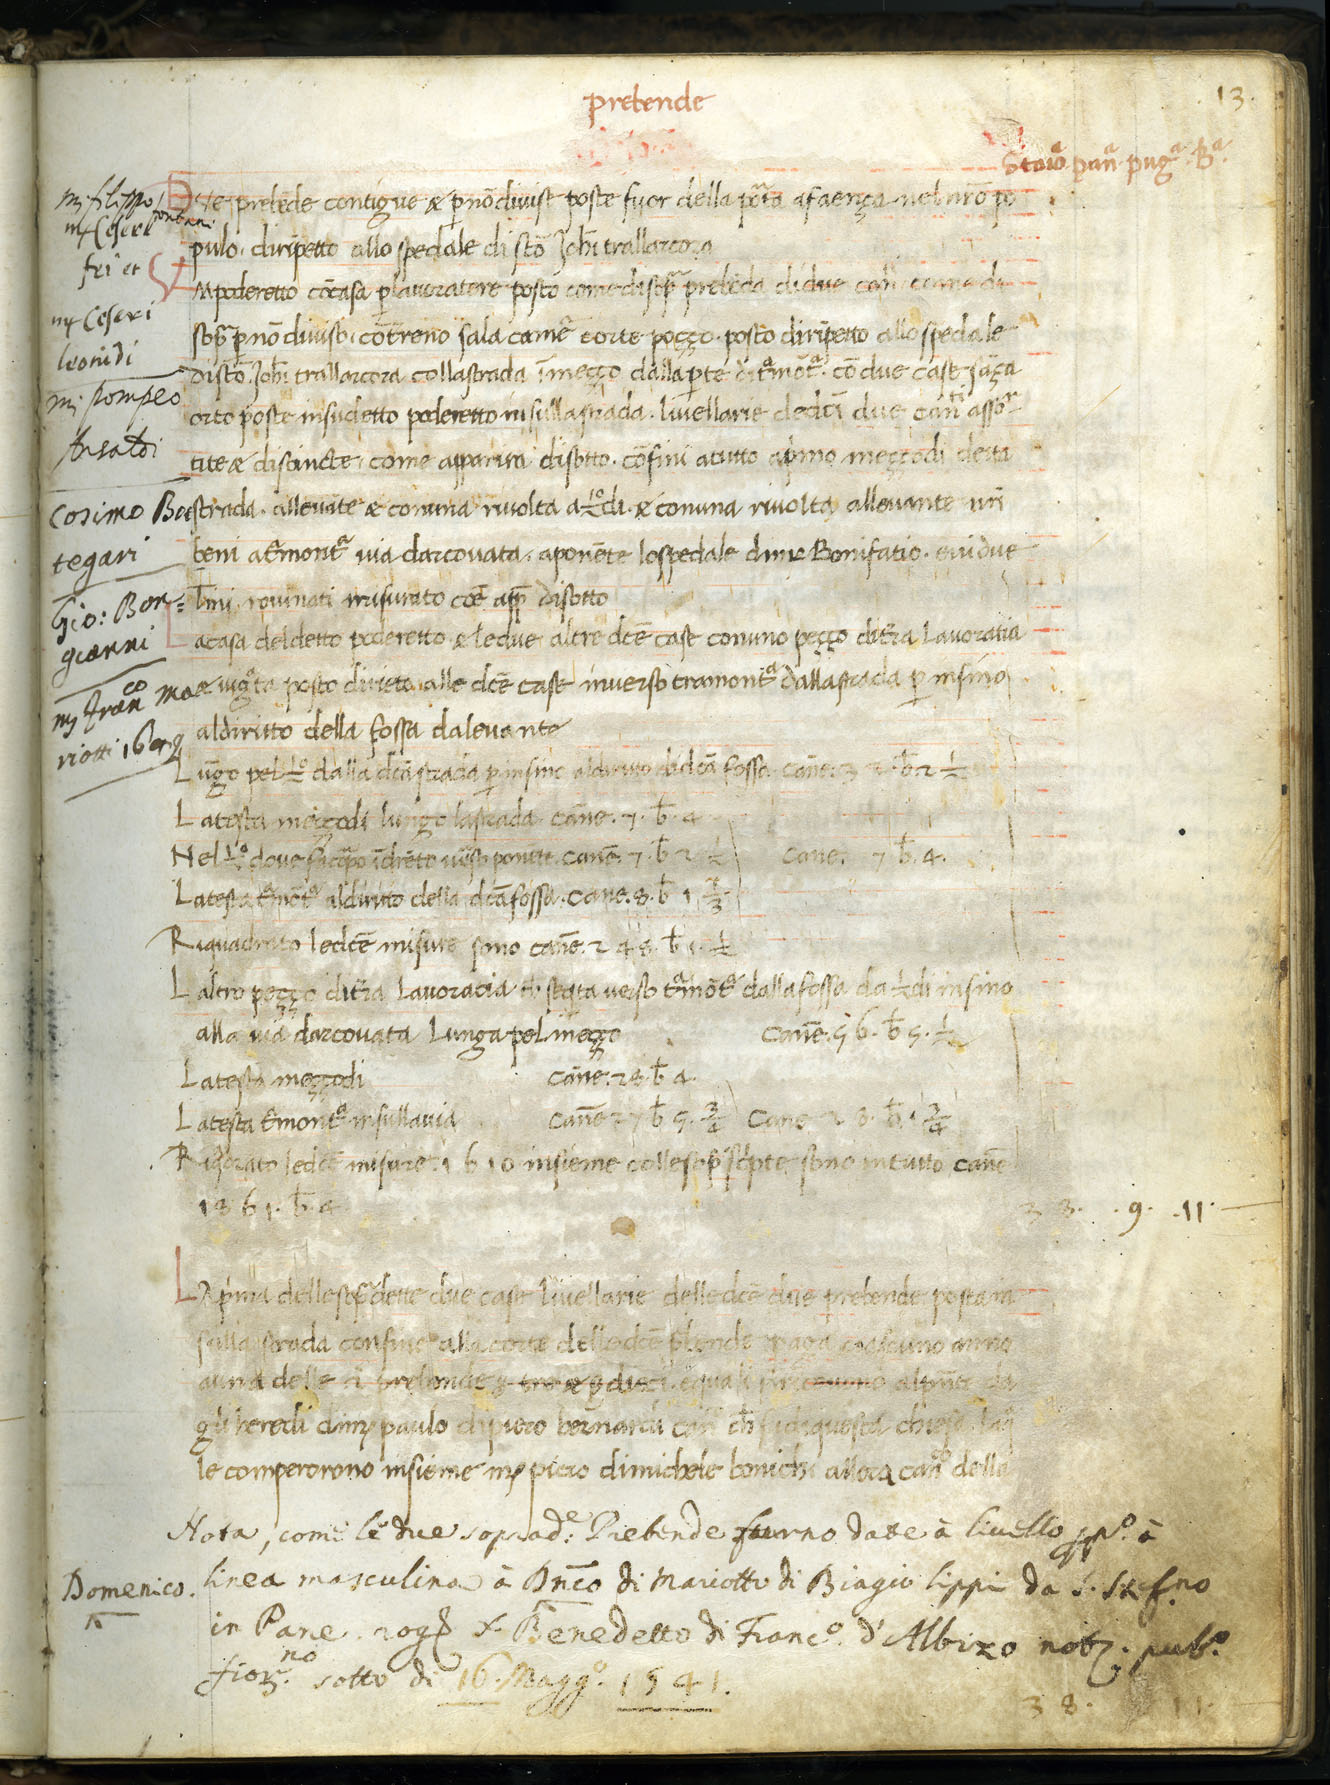 prebende
13.
Staiᵃ panᵃ pugᵃ Bᵃ
mʳ filippo
mʳ Ceseri fontani
fri et
mʳ Ceseri
leonidi
mʳ pompeo
Ansaldi
Cosimo Bot
tegari
Gio: Bon=
gianni
mʳ Franᶜᵒ Ma
riotti
Due prebēde contigue & p nō divise poste fuor della porta afaença nel nr̄o po
pulo. diripetto allo spedale di sc̄o Joh̄i trallarcora
Un poderetto cō casa p lavoratere posto come di sopᵃ prebēda di due can̄i come di
sopᵃ p nō diviso. cō terreno sala camē e corte poçço. posto diripetto allo spedale
di sc̄o Joh̄i trallarcora colla strada ī meçço dalla pte di tᵃmōtᵃ. cō due case sāça
orto poste in su detto poderetto in sulla strada. livellarie de dc̄i due can̄ti assor
tite & distincte. come apparira disotto. cōfini a tutto apˢmo meççodi detta
strada. allevāte & con una rivolta a ½di. & con una rivolta allevante nr̄i
beni a tᵃmontᵃ via darcovata. aponēte lospedale di mʳ Bonifatio. evi due
tini rovinati misurato coē app̄ disotto
La casa del detto poderetto. & le due altre dc̄e case con uno peçço di tr̄ra lavoratia
& vigᵃta posto dirieto alle dc̄e case inverso tramontᵃ dalla strada p insino
aldiritto della fossa dalevante
Lūgo pel ½ᵒ dalla dc̄a strada p insino aldiritto di dc̄a fossa. cāne. 32. b̄ 2 ½
La testa meççodi lungo la strada cāne. 7. b̄ 4
Nel ½ᵒ dove canē. 7. b̄ 2 ½ cane. 7 b̄. 4.
La testa tᵃmōtᵃ aldiritto della dc̄a fossa. cane. 8. b̄ 1 ⅔
Riquadrato le dc̄e misure sono cāne. 248. b̄ 1. ½
Laltro peçço di tr̄ra lavoracia verso tᵃmōtᵃ dalla fossa da ½di insino
alla via darcovata lunga pel meçço canē. 56. b̄ 5. ½
La testa meççodi cāne. 28. b̄ 4.
La testa tᵃmontᵃ in sulla via canē 27 b̄ 5. ¾ cane 28. b̄. 1 ¾
Riqᵈrato le dc̄e misure. 1610 insieme colle sopᵃ scr̄pte sono in tutto canē
1861. b̄. 4 33. .9. .11.
La pˢma delle sopᵃ dette due case livellarie delle dc̄e due prebende posta in
sulla strada confine alla corte delle dc̄e pˢbende paga ciascuno anno
a una delle prebende
gli heredi di mʳ paulo di piero bernardi can̄ di questa chiesa.
le comperorono insieme mʳ piero di michele bonichi allora canᵒ della
Nota, come le due sopradᵉ: Prebende furno date à livello à
Domenico. linea masculina à Dn̄co di Mariotto di Biagio lippi da S. Stefᵃno
in Pane. rogᵒ Sʳ Benedetto di Francᵒ. d'Albizo notᵒ. pubᵒ.
fiorⁿᵒ. sotto di 16 Maggᵒ. 1541.
38. 11.